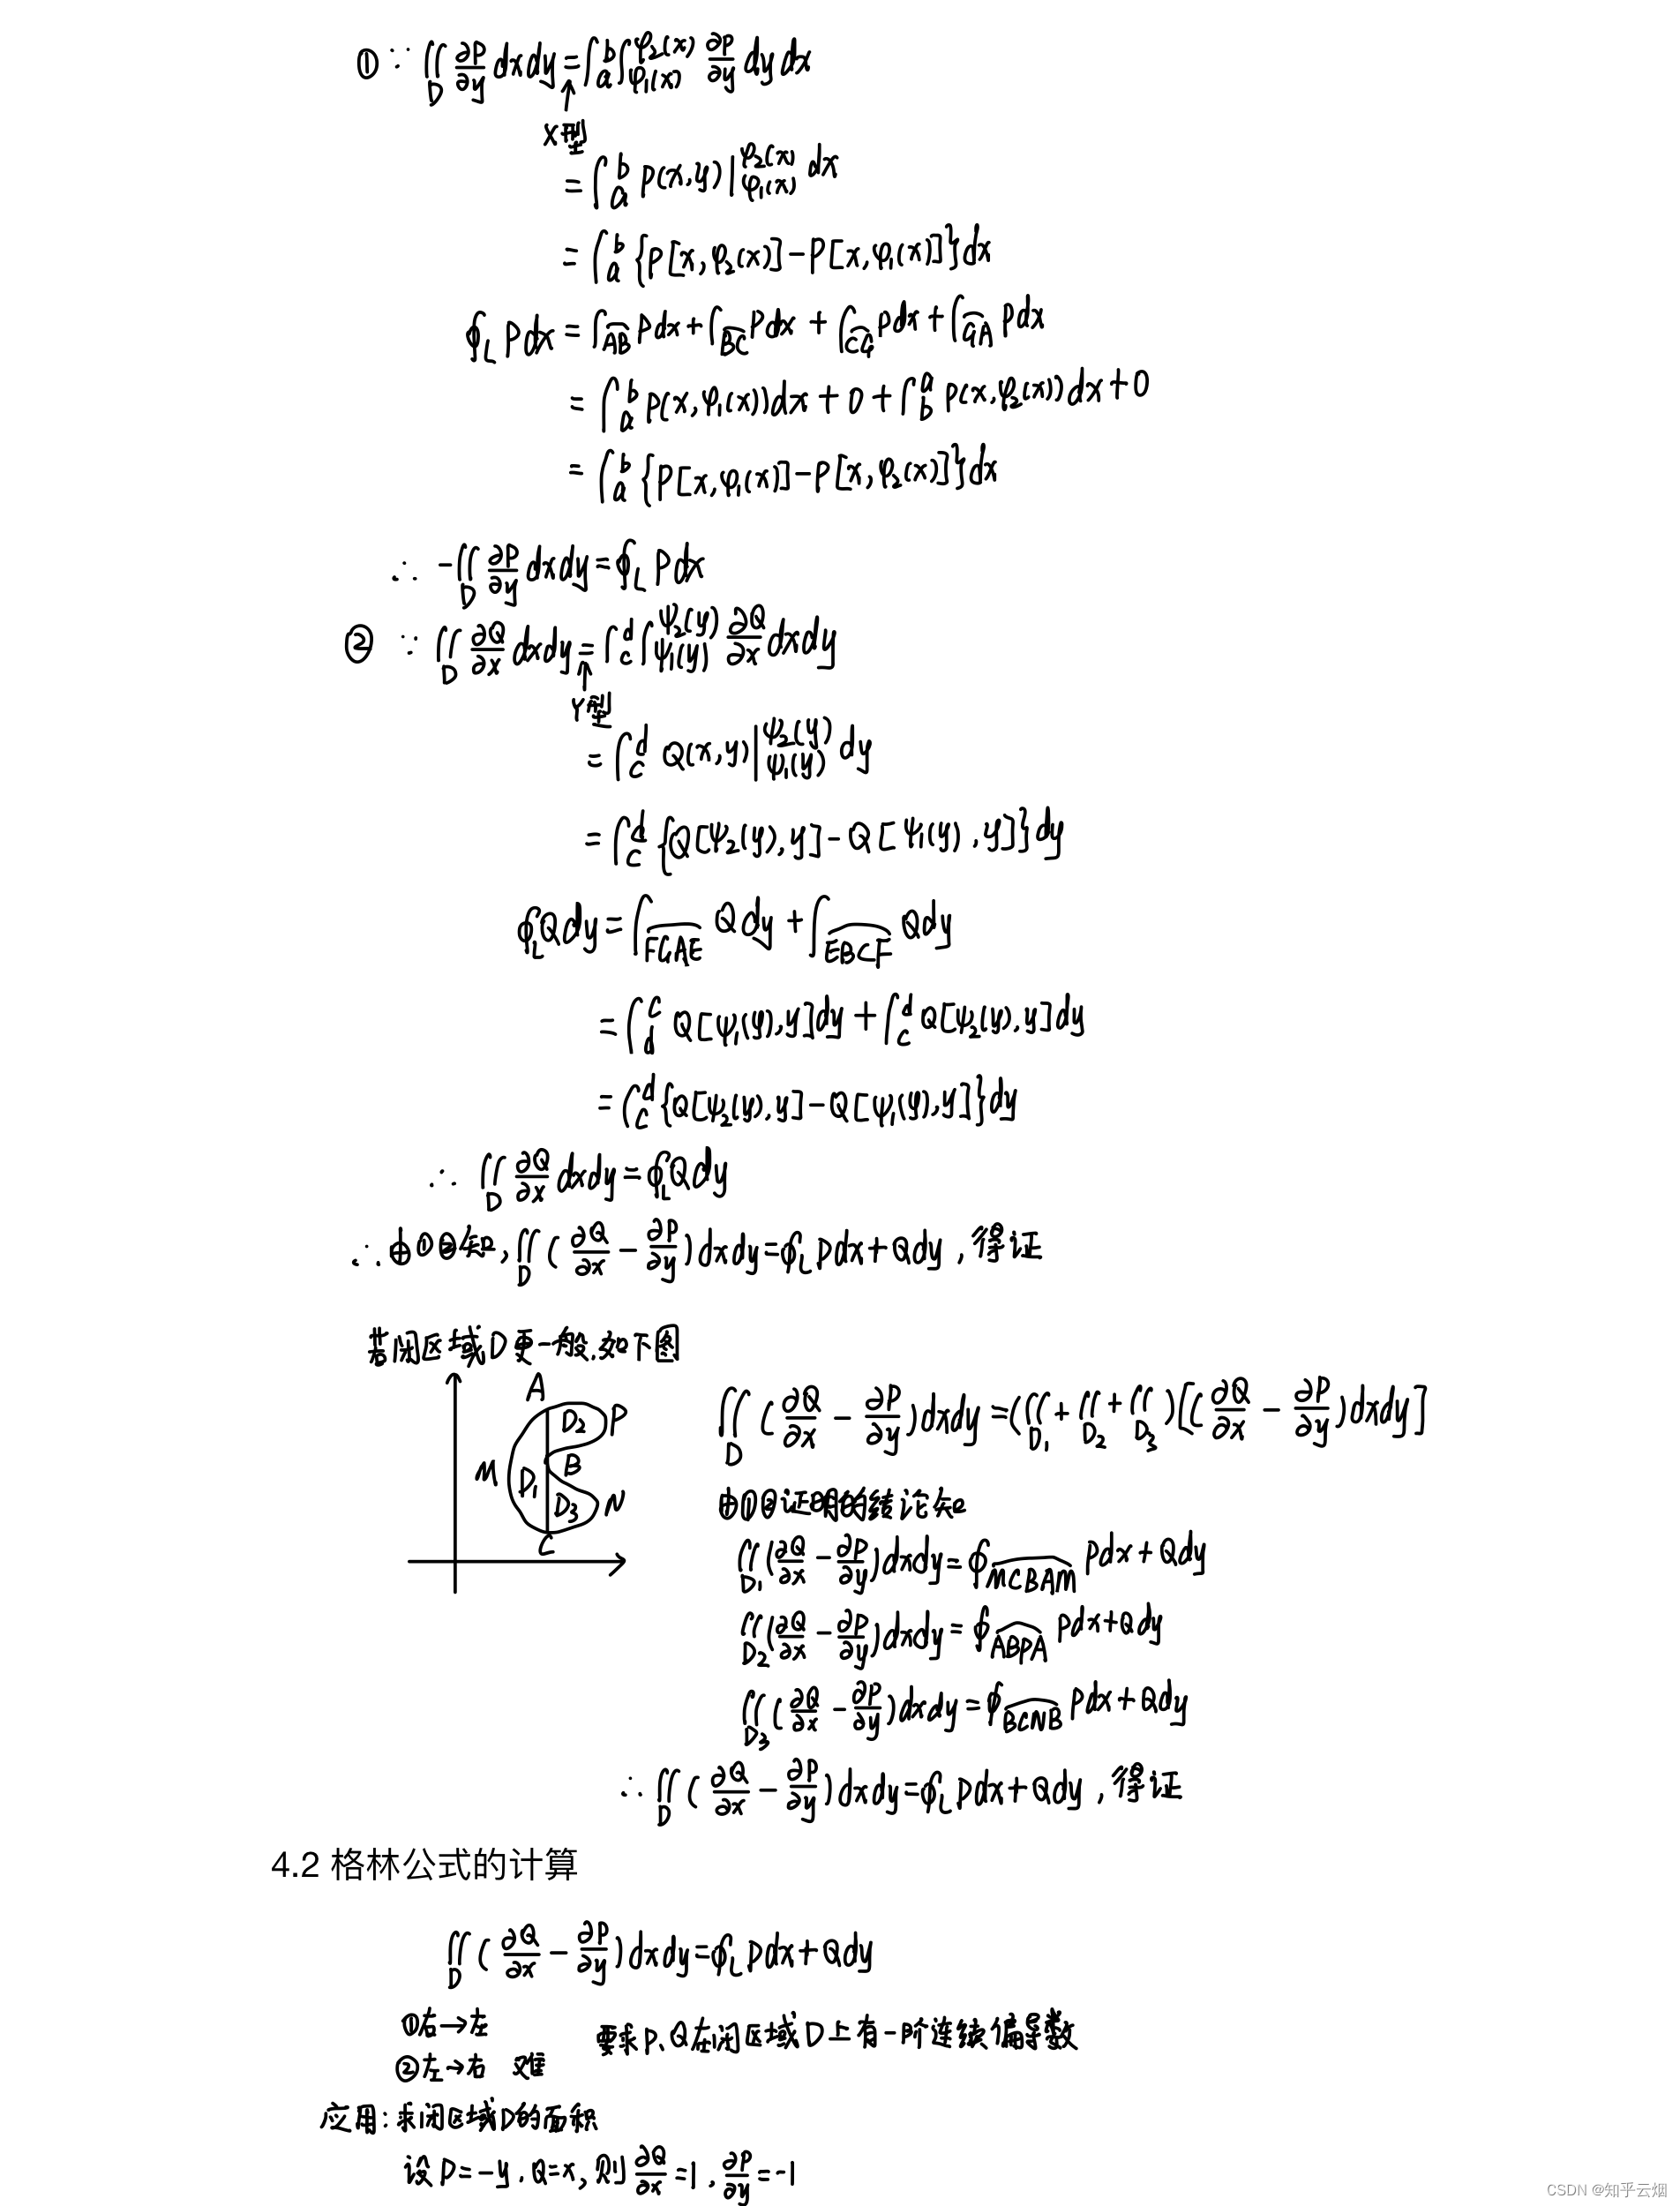 ① ∵ ∬_D ∂P/∂y dxdy = ∫_a^b ∫_{φ₁(x)}^{φ₂(x)} ∂P/∂y dy dx
↑
X型
= ∫_a^b P(x,y)|_{φ₁(x)}^{φ₂(x)} dx
= ∫_a^b {P[x,φ₂(x)]-P[x,φ₁(x)]}dx
∮_L Pdx = ∫_{AB} Pdx+∫_{BC} Pdx + ∫_{CG} Pdx+∫_{GA} Pdx
= ∫_a^b P(x,φ₁(x))dx + 0 + ∫_b^a P(x,φ₂(x))dx+0
= ∫_a^b {P[x,φ₁(x)]-P[x,φ₂(x)]}dx
∴ -∬_D ∂P/∂y dxdy=∮_L Pdx
② ∵ ∬_D ∂Q/∂x dxdy = ∫_c^d ∫_{ψ₁(y)}^{ψ₂(y)} ∂Q/∂x dxdy
↑
Y型
= ∫_c^d Q(x,y)|_{ψ₁(y)}^{ψ₂(y)} dy
= ∫_c^d {Q[ψ₂(y),y]-Q[ψ₁(y),y]}dy
∮_L Qdy = ∫_{FGAE} Qdy +∫_{EBCF} Qdy
= ∫_d^c Q[ψ₁(y),y]dy + ∫_c^d Q[ψ₂(y),y]dy
= ∫_c^d {Q[ψ₂(y),y]-Q[ψ₁(y),y]}dy
∴ ∬_D ∂Q/∂x dxdy=∮_L Qdy
∴由①②知,∬_D (∂Q/∂x - ∂P/∂y)dxdy=∮_L Pdx+Qdy,得证
若闭区域D更一般.如下图
A
D₂ P
M D₁ B
D₃ N
C
∬_D (∂Q/∂x - ∂P/∂y)dxdy=(∬_{D₁}+∬_{D₂}+∬_{D₃})[(∂Q/∂x - ∂P/∂y)dxdy]
由①②证明的结论知
∬_{D₁}(∂Q/∂x - ∂P/∂y)dxdy=∮_{MCBAM} Pdx+Qdy
∬_{D₂}(∂Q/∂x - ∂P/∂y)dxdy=∮_{ABPA} Pdx+Qdy
∬_{D₃}(∂Q/∂x - ∂P/∂y)dxdy=∮_{BCNB} Pdx+Qdy
∴ ∬_D (∂Q/∂x - ∂P/∂y)dxdy=∮_L Pdx+Qdy,得证
4.2 格林公式的计算
∬_D (∂Q/∂x - ∂P/∂y)dxdy=∮_L Pdx+Qdy
①右→左
②左→右 难
要求P、Q在闭区域D上有一阶连续偏导数
应用:求闭区域D的面积
设P=-y,Q=x,则∂Q/∂x=1,∂P/∂y=-1
CSDN @知乎云烟